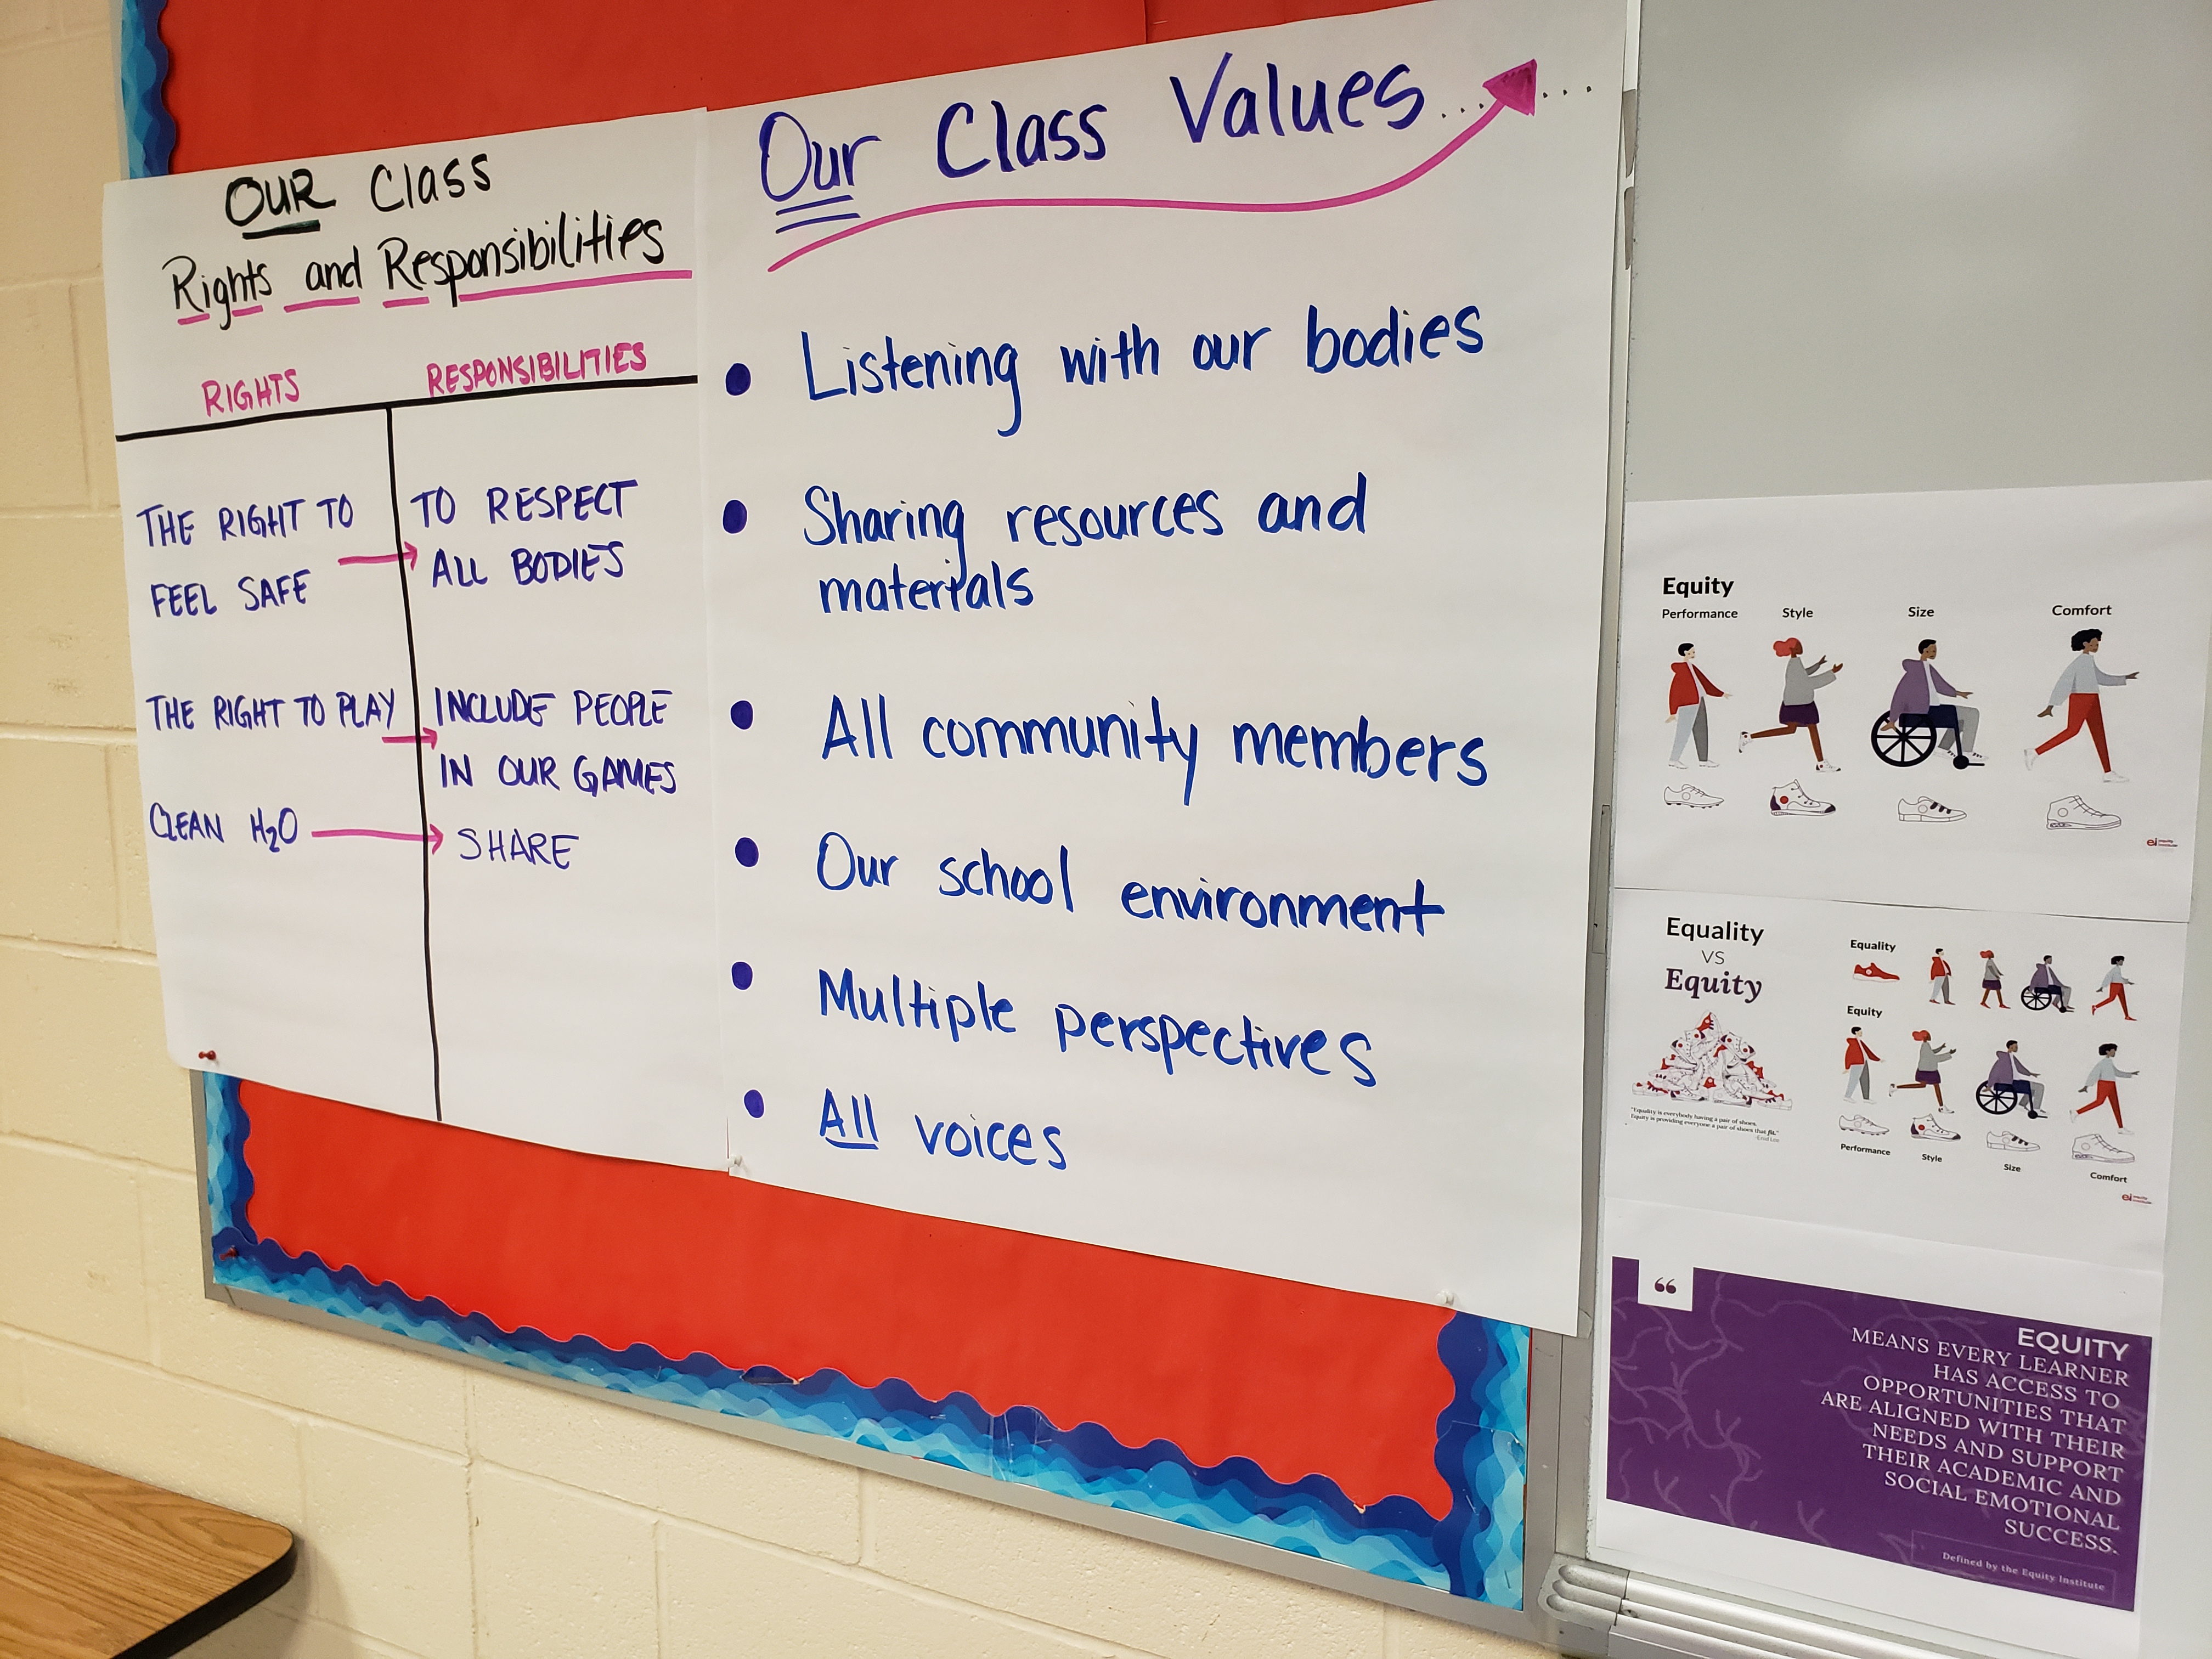 OUR Class
Rights and Responsibilities
RIGHTS
RESPONSIBILITIES
THE RIGHT TO
FEEL SAFE
TO RESPECT
ALL BODIES
THE RIGHT TO PLAY
INCLUDE PEOPLE
IN OUR GAMES
CLEAN H₂O
SHARE
Our Class Values
• Listening with our bodies
• Sharing resources and
materials
• All community members
• Our school environment
• Multiple perspectives
• All voices
Equity
Performance
Style
Size
Comfort
ei
Equality
VS
Equity
"Equality is everybody having a pair of shoes.
Equity is providing everyone a pair of shoes that fit."
Equality
Equity
Performance
Style
Size
Comfort
ei
“
EQUITY
MEANS EVERY LEARNER
HAS ACCESS TO
OPPORTUNITIES THAT
ARE ALIGNED WITH THEIR
NEEDS AND SUPPORT
THEIR ACADEMIC AND
SOCIAL EMOTIONAL
SUCCESS.
Defined by the Equity Institute